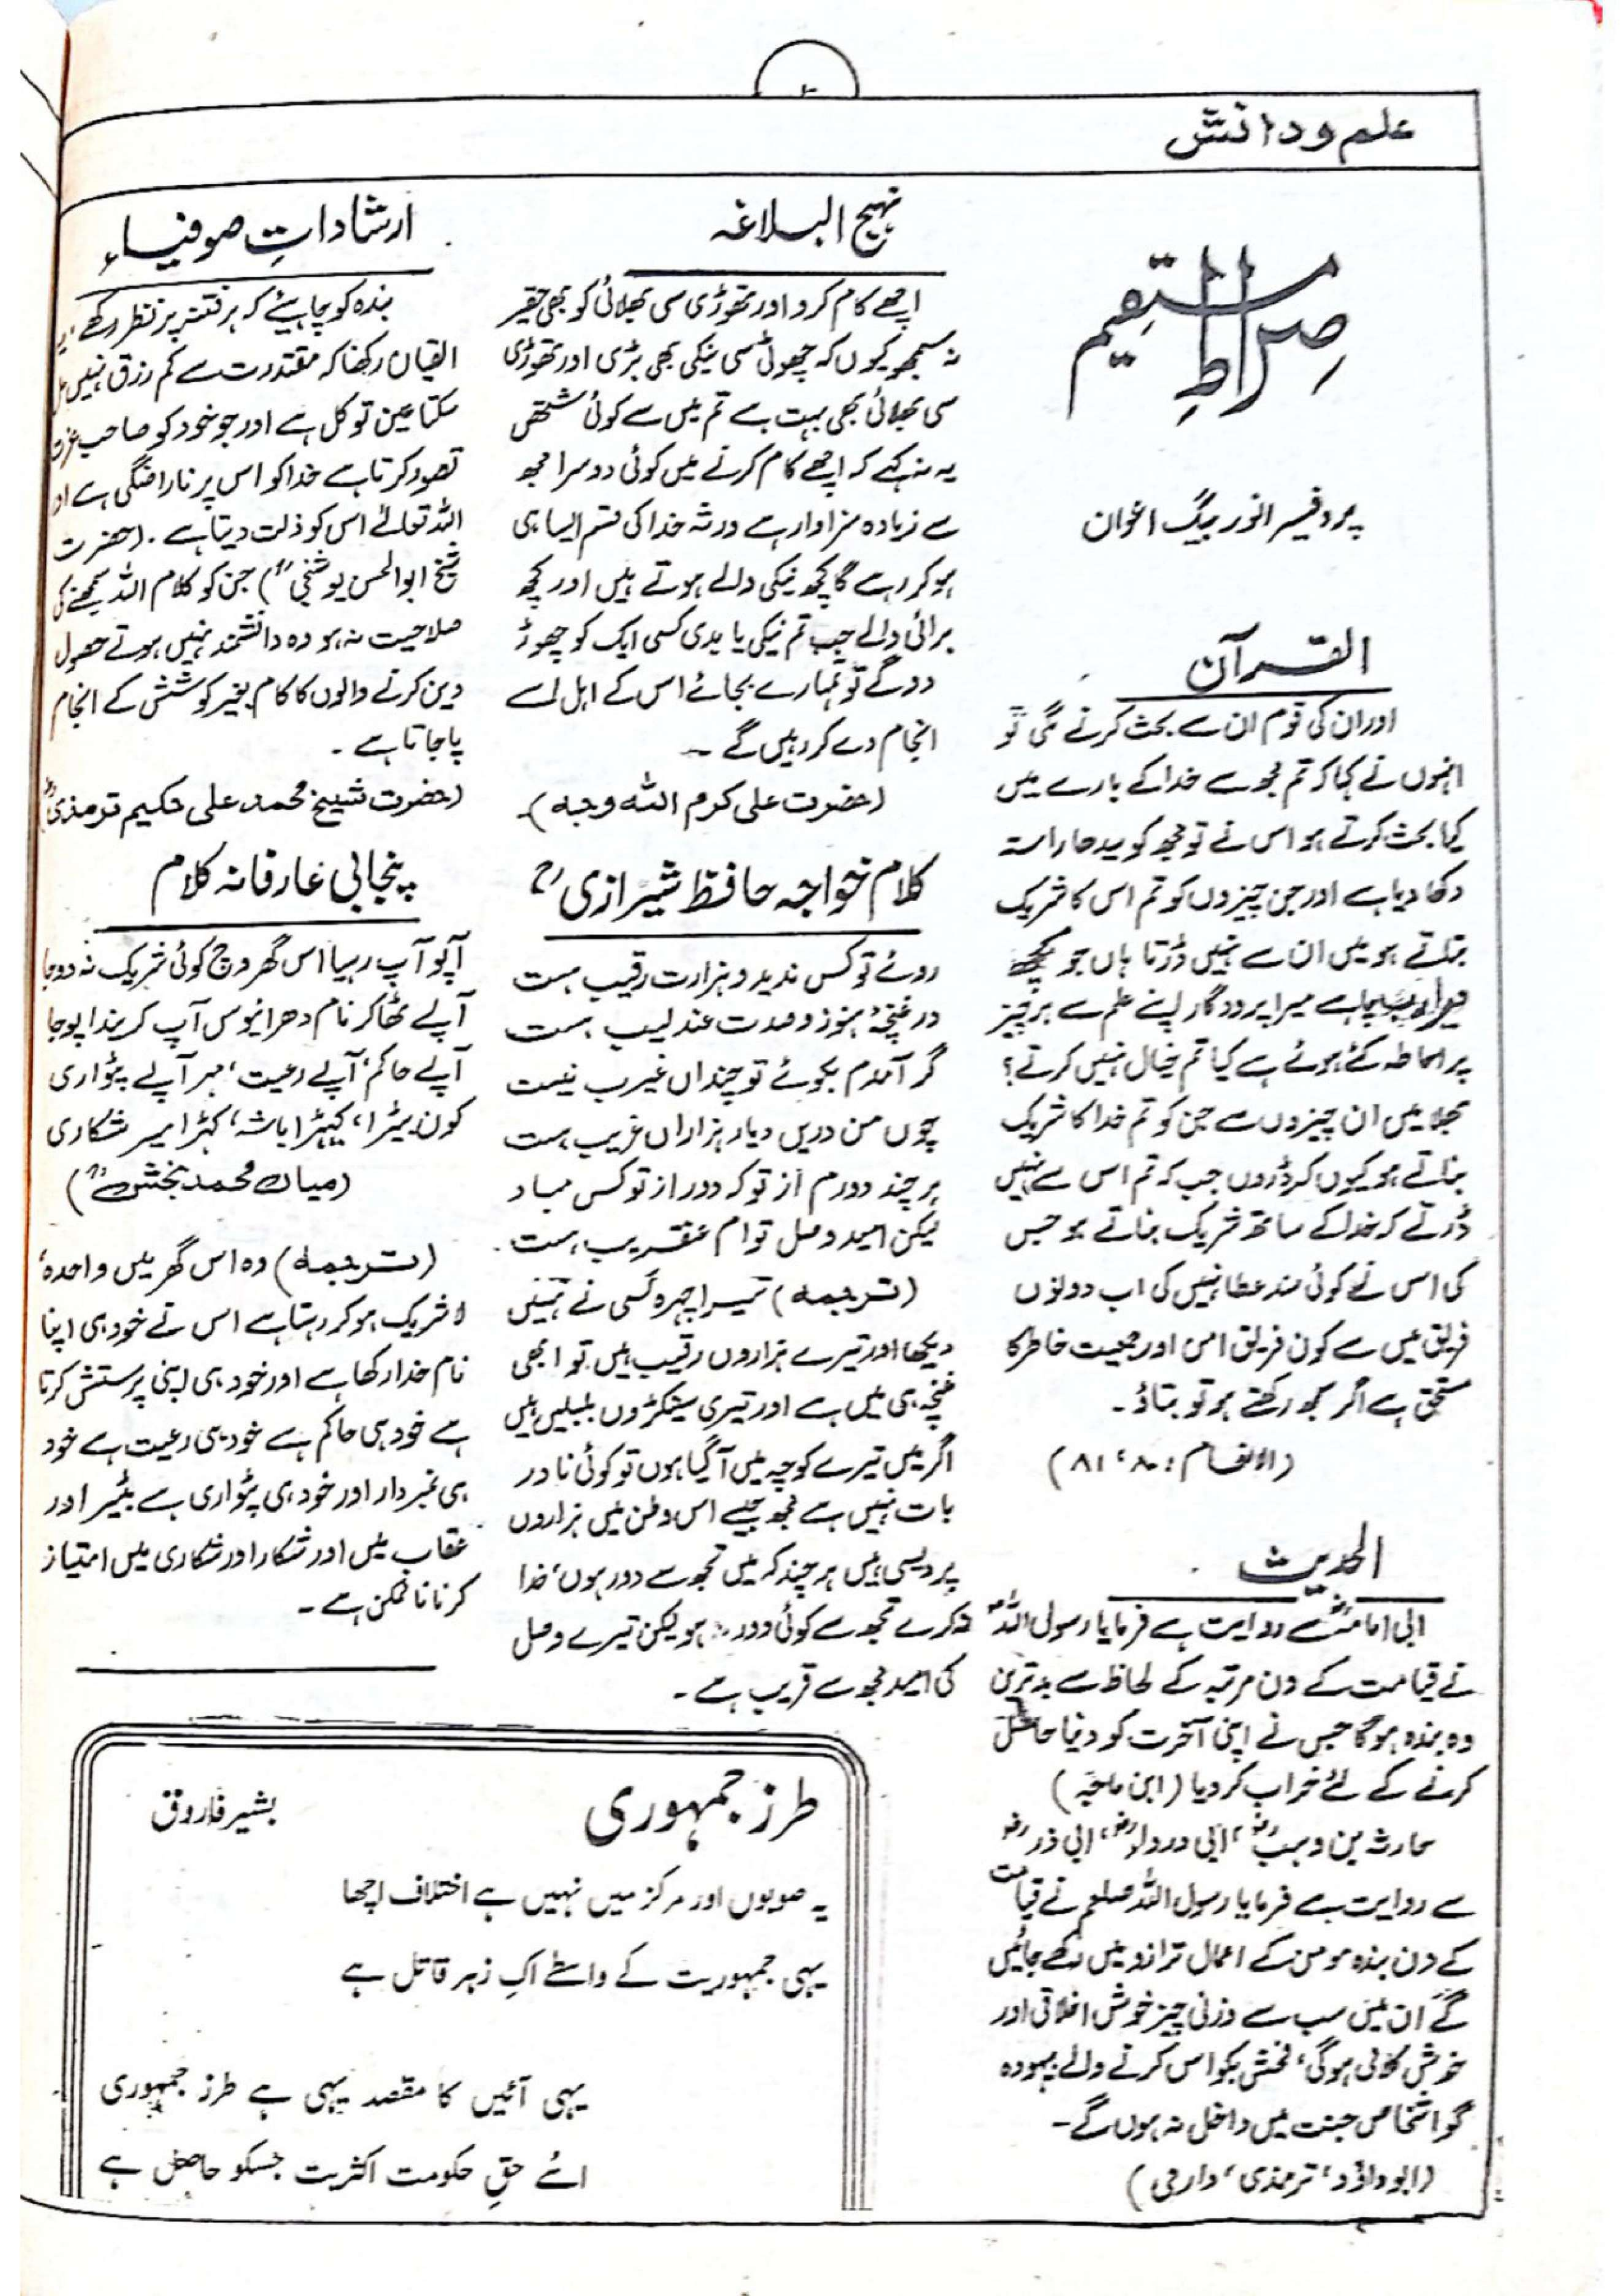 علم و دانش
صراطِ مستقیم
پروفیسر انور بیگ اعوان
القرآن
اور ان کی قوم ان سے بحث کرنے لگی تو
انہوں نے کہا کہ تم مجھ سے خدا کے بارے میں
کیا بحث کرتے ہو اس نے تو مجھ کو سیدھا راستہ
دکھا دیا ہے اور جن چیزوں کو تم اس کا شریک
بتاتے ہو میں ان سے نہیں ڈرتا ہاں جو کچھ
میرا رب چاہے میرا پروردگار اپنے علم سے ہر چیز
پر احاطہ کئے ہوئے ہے کیا تم خیال نہیں کرتے؟
بھلا میں ان چیزوں سے جن کو تم خدا کا شریک
بناتے ہو کیوں کر ڈروں جب کہ تم اس سے نہیں
ڈرتے کہ خدا کے ساتھ شریک بناتے ہو جس
کی اس نے کوئی سند عطا نہیں کی اب دونوں
فریق میں سے کون فریق امن اور جمعیت خاطر کا
مستحق ہے اگر سمجھ رکھتے ہو تو بتاؤ۔
(الانعام : ۸۰، ۸۱)
الحدیث
ابی امامہؓ سے روایت ہے فرمایا رسول اللہؐ
نے قیامت کے دن مرتبہ کے لحاظ سے بدترین
وہ بندہ ہوگا جس نے اپنی آخرت کو دنیا حاصل
کرنے کے لئے خراب کر دیا (ابن ماجہ)
حارثہ بن وہبؓ، ابی درداؓ، ابی ذرؓ
سے روایت ہے فرمایا رسول اللہ صلعم نے قیامت
کے دن بندہ مومن کے اعمال ترازو میں رکھے جائیں
گے ان میں سب سے وزنی چیز خوش اخلاقی اور
خوش کلامی ہوگی، فحش بکواس کرنے والے بیہودہ
گو اشخاص جنت میں داخل نہ ہوں گے۔
(ابوداؤد، ترمذی، دارمی)
نہج البلاغہ
اچھے کام کرو اور تھوڑی سی بھلائی کو بھی حقیر
نہ سمجھو کیوں کہ چھوٹی سی نیکی بھی بڑی اور تھوڑی
سی بھلائی بھی بہت ہے تم میں سے کوئی شخص
یہ نہ کہے کہ اچھے کام کرنے میں کوئی دوسرا مجھ
سے زیادہ سزاوار ہے ورنہ خدا کی قسم ایسا ہی
ہو کر رہے گا کچھ نیکی والے ہوتے ہیں اور کچھ
برائی والے جب تم نیکی یا بدی کسی ایک کو چھوڑ
دو گے تو تمہارے بجائے اس کے اہل اسے
انجام دے کر رہیں گے۔
(حضرت علی کرم اللہ وجہ)۔
کلام خواجہ حافظ شیرازیؒ
روئے تو کس ندید و ہزارت رقیب ہست
در غنچۂ ہنوز و صدت عندلیب ہست
گر آمدم بکوئے تو چنداں غریب نیست
چوں من دریں دیار ہزاراں غریب ہست
ہر چند دورم از تو کہ دور از تو کس مباد
لیکن امید وصل توام عنقریب ہست۔
(ترجمہ) تیرا چہرہ کسی نے نہیں
دیکھا اور تیرے ہزاروں رقیب ہیں تو ابھی
غنچہ ہی میں ہے اور تیری سینکڑوں بلبلیں ہیں
اگر میں تیرے کوچہ میں آ گیا ہوں تو کوئی نادر
بات نہیں ہے مجھ جیسے اس وطن میں ہزاروں
پردیسی ہیں ہر چند کہ میں تجھ سے دور ہوں، خدا
نہ کرے تجھ سے کوئی دور ہو لیکن تیرے وصل
کی امید مجھ سے قریب ہے۔
ارشاداتِ صوفیاء
بندہ کو چاہیئے کہ ہر فتنہ پر نظر رکھے
ایقان رکھنا کہ مقتدرت سے کم رزق نہیں مل
سکتا عین توکل ہے اور جو خود کو صاحب عزت
تصور کرتا ہے خدا کو اس پر ناراضگی ہے اور
اللہ تعالےٰ اس کو ذلت دیتا ہے۔ (حضرت
شیخ ابوالحسن بوشنجیؒ) جن کو کلام اللہ سمجھنے کی
صلاحیت نہ ہو وہ دانشمند نہیں ہوتے حصول
دین کرنے والوں کا کام بغیر کوشش کے انجام
پا جاتا ہے۔
(حضرت شیخ محمد علی حکیم ترمذیؒ)
پنجابی عارفانہ کلام
آپو آپ رہیا اس گھر وچ کوئی شریک نہ دوجا
آپے ٹھاکر نام دھرایوس آپ کریندا پوجا
آپے حاکم، آپے رعیت، مہر آپے پٹواری
کون بیٹرا، کیہڑا باشہ، کہڑا میر شکاری
(میاں محمد بخشؒ)
(ترجمہ) وہ اس گھر میں واحدہ،
لا شریک ہو کر رہتا ہے اس نے خود ہی اپنا
نام خدا رکھا ہے اور خود ہی اپنی پرستش کرتا
ہے خود ہی حاکم ہے خود ہی رعیت ہے خود
ہی نمبردار اور خود ہی پٹواری ہے بٹیر اور
عقاب میں اور شکار اور شکاری میں امتیاز
کرنا ناممکن ہے۔
طرز جمہوری
بشیر فاروق
یہ صوبوں اور مرکز میں نہیں ہے اختلاف اچھا
یہی جمہوریت کے واسطے اک زہر قاتل ہے
یہی آئیں کا مقصد یہی ہے طرز جمہوری
اسے حقِ حکومت اکثریت جسکو حاصل ہے